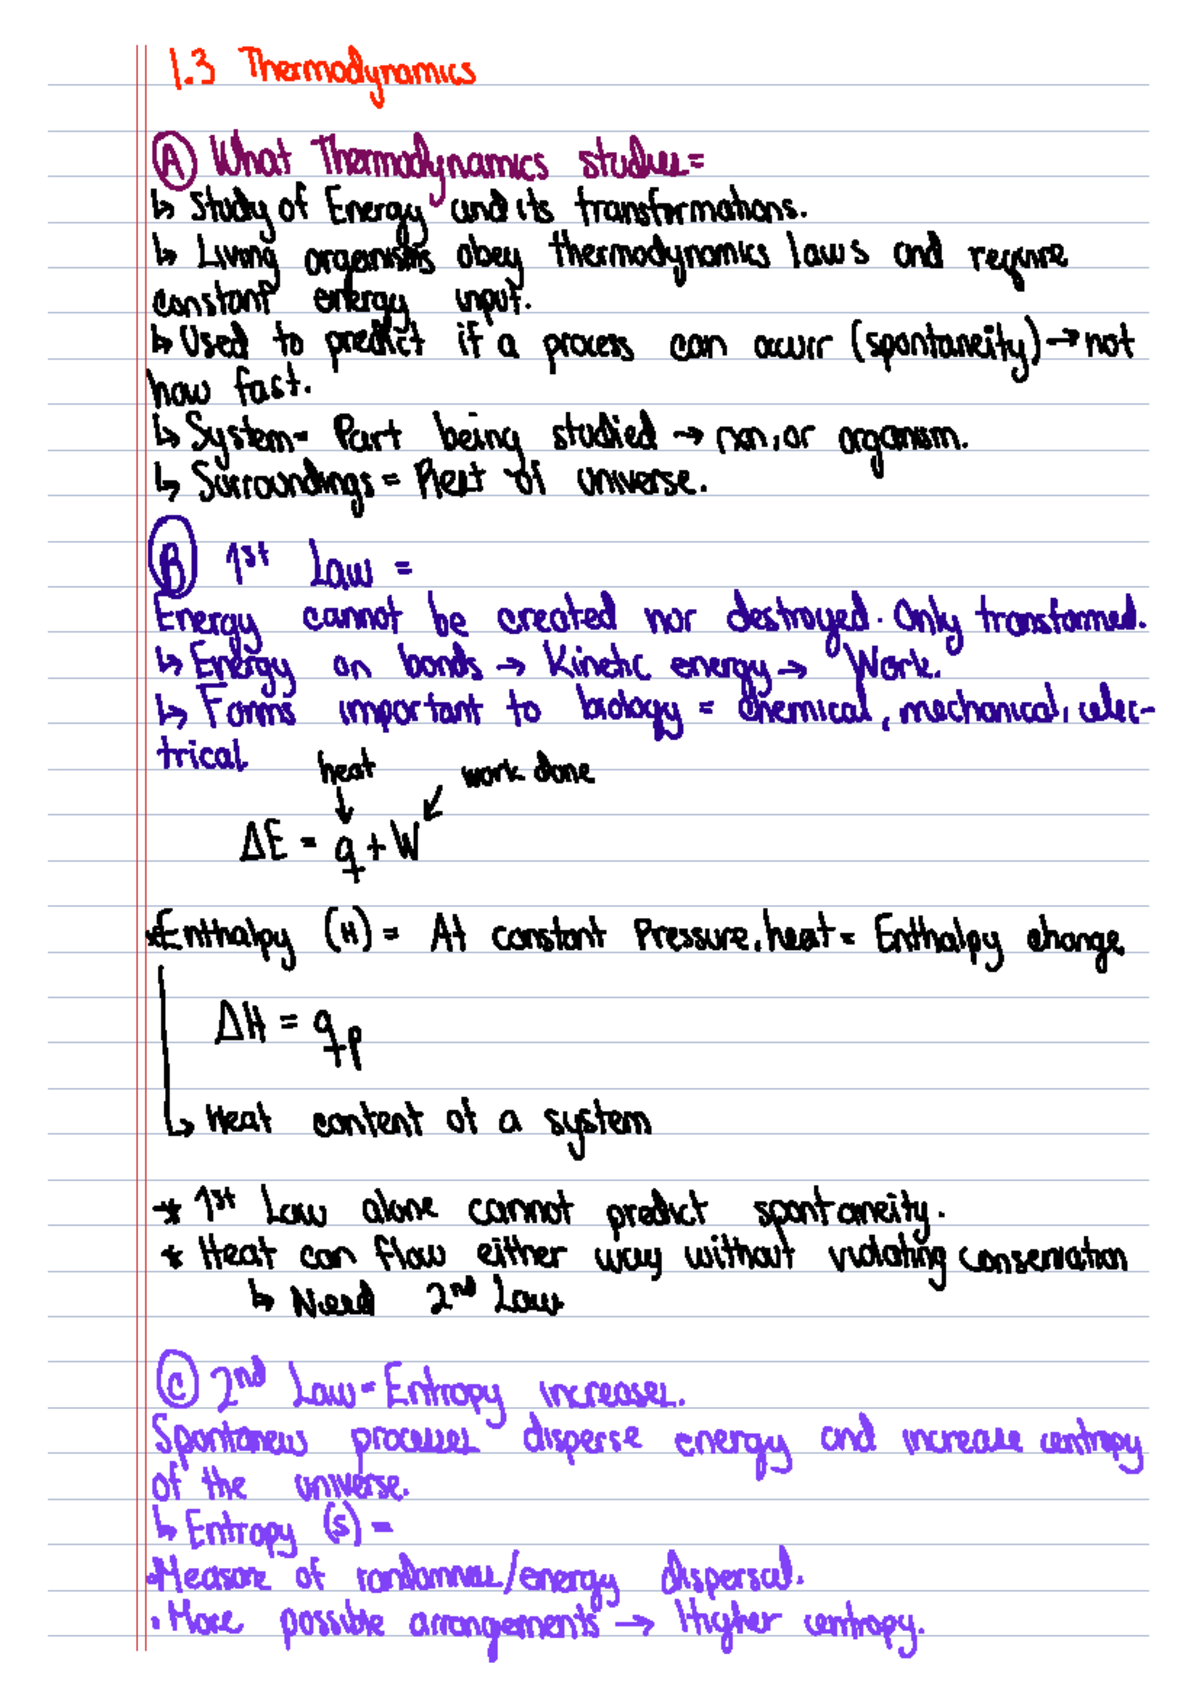 1.3 Thermodynamics
Ⓐ What Thermodynamics studies=
↳ Study of Energy and its transformations.
↳ Living organisms obey thermodynamics laws and require
constant energy input.
↳ Used to predict if a process can occurr (spontaneity) → not
how fast.
↳ System= Part being studied → rxn, or organism.
↳ Surroundings = Rest of universe.
Ⓑ 1st Law =
Energy cannot be created nor destroyed. Only transformed.
↳ Energy on bonds → Kinetic energy → Work.
↳ Forms important to biology = Chemical, mechanical, elec-
trical
heat work done
ΔE = q + W
*Enthalpy (H) = At constant Pressure, heat = Enthalpy change
ΔH = qp
↳ Heat content of a system
* 1st Law alone cannot predict spontaneity.
* Heat can flow either way without violating conservation
↳ Need 2nd Law
Ⓒ 2nd Law = Entropy increases.
Spontaneus processes disperse energy and increase entropy
of the universe.
↳ Entropy (S) =
•Measure of randomness/energy dispersal.
• More possible arrangements → Higher entropy.